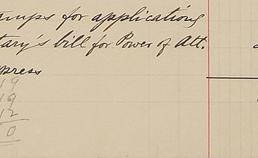 amps for applications
tary's bill for Power of Att.
press
19
19
12
0